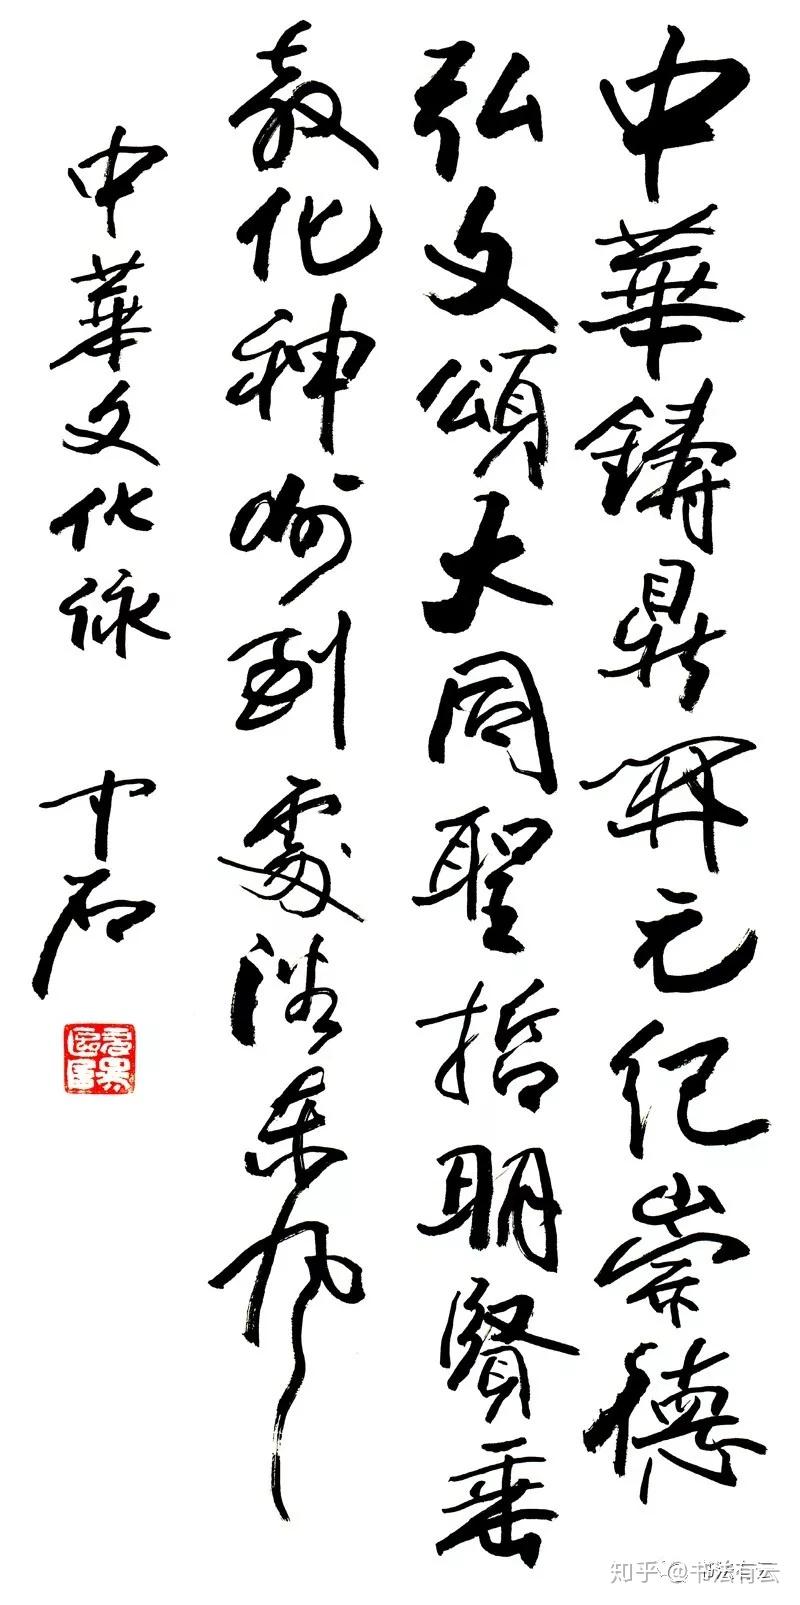 中華鑄鼎開元紀崇德
弘文頌大同聖哲明賢垂
教化神州到處東風
中華文化詠 中石
知乎 @书法有云